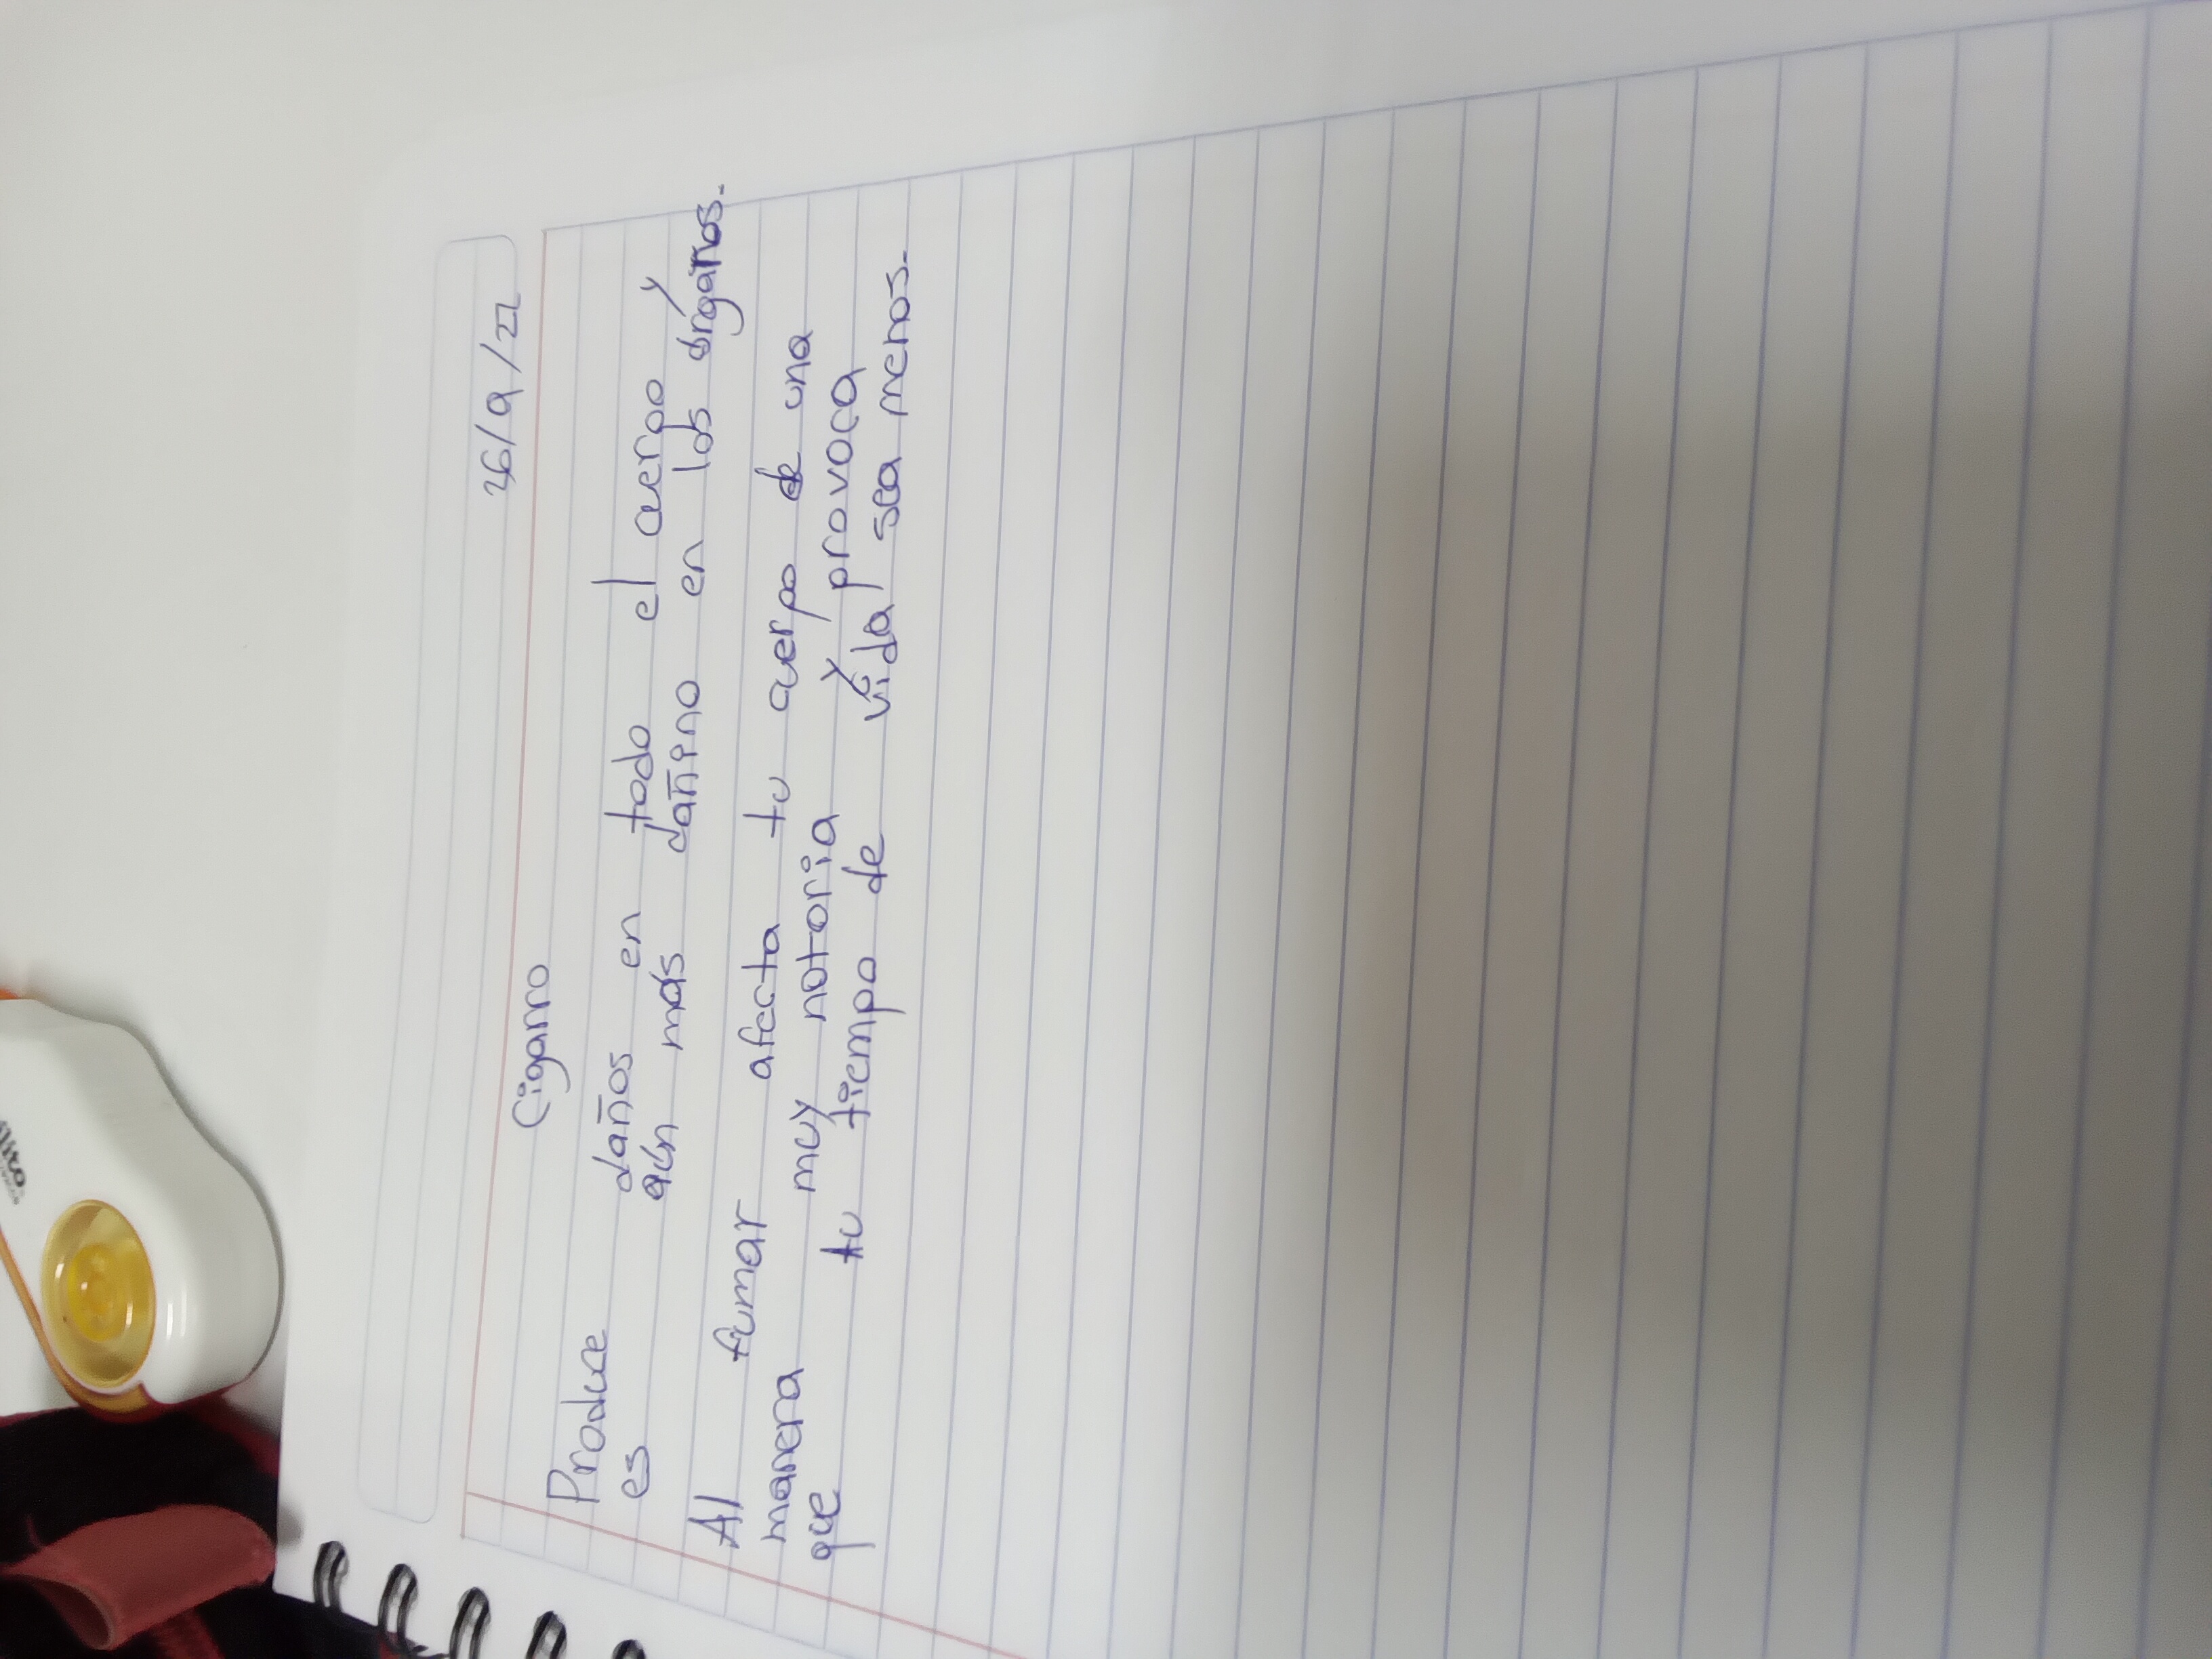 26/9/22
Cigarro
Produce daños en todo el cuerpo y
es aún más dañino en los órganos.
Al fumar afecta tu cuerpo de una
manera muy notoria y provoca
que tu tiempo de vida sea menos.